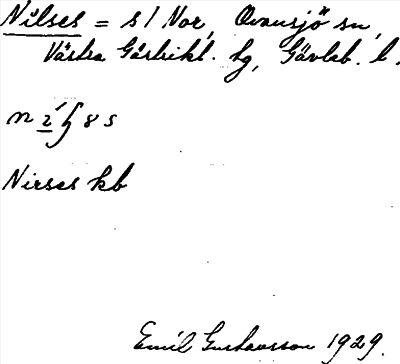 Nilses = s/ Nor, Ovansjö sn,
Västra Gästrikl. hg, Gävleb. l.
Nirses kb
Emil Gustavsson 1929.